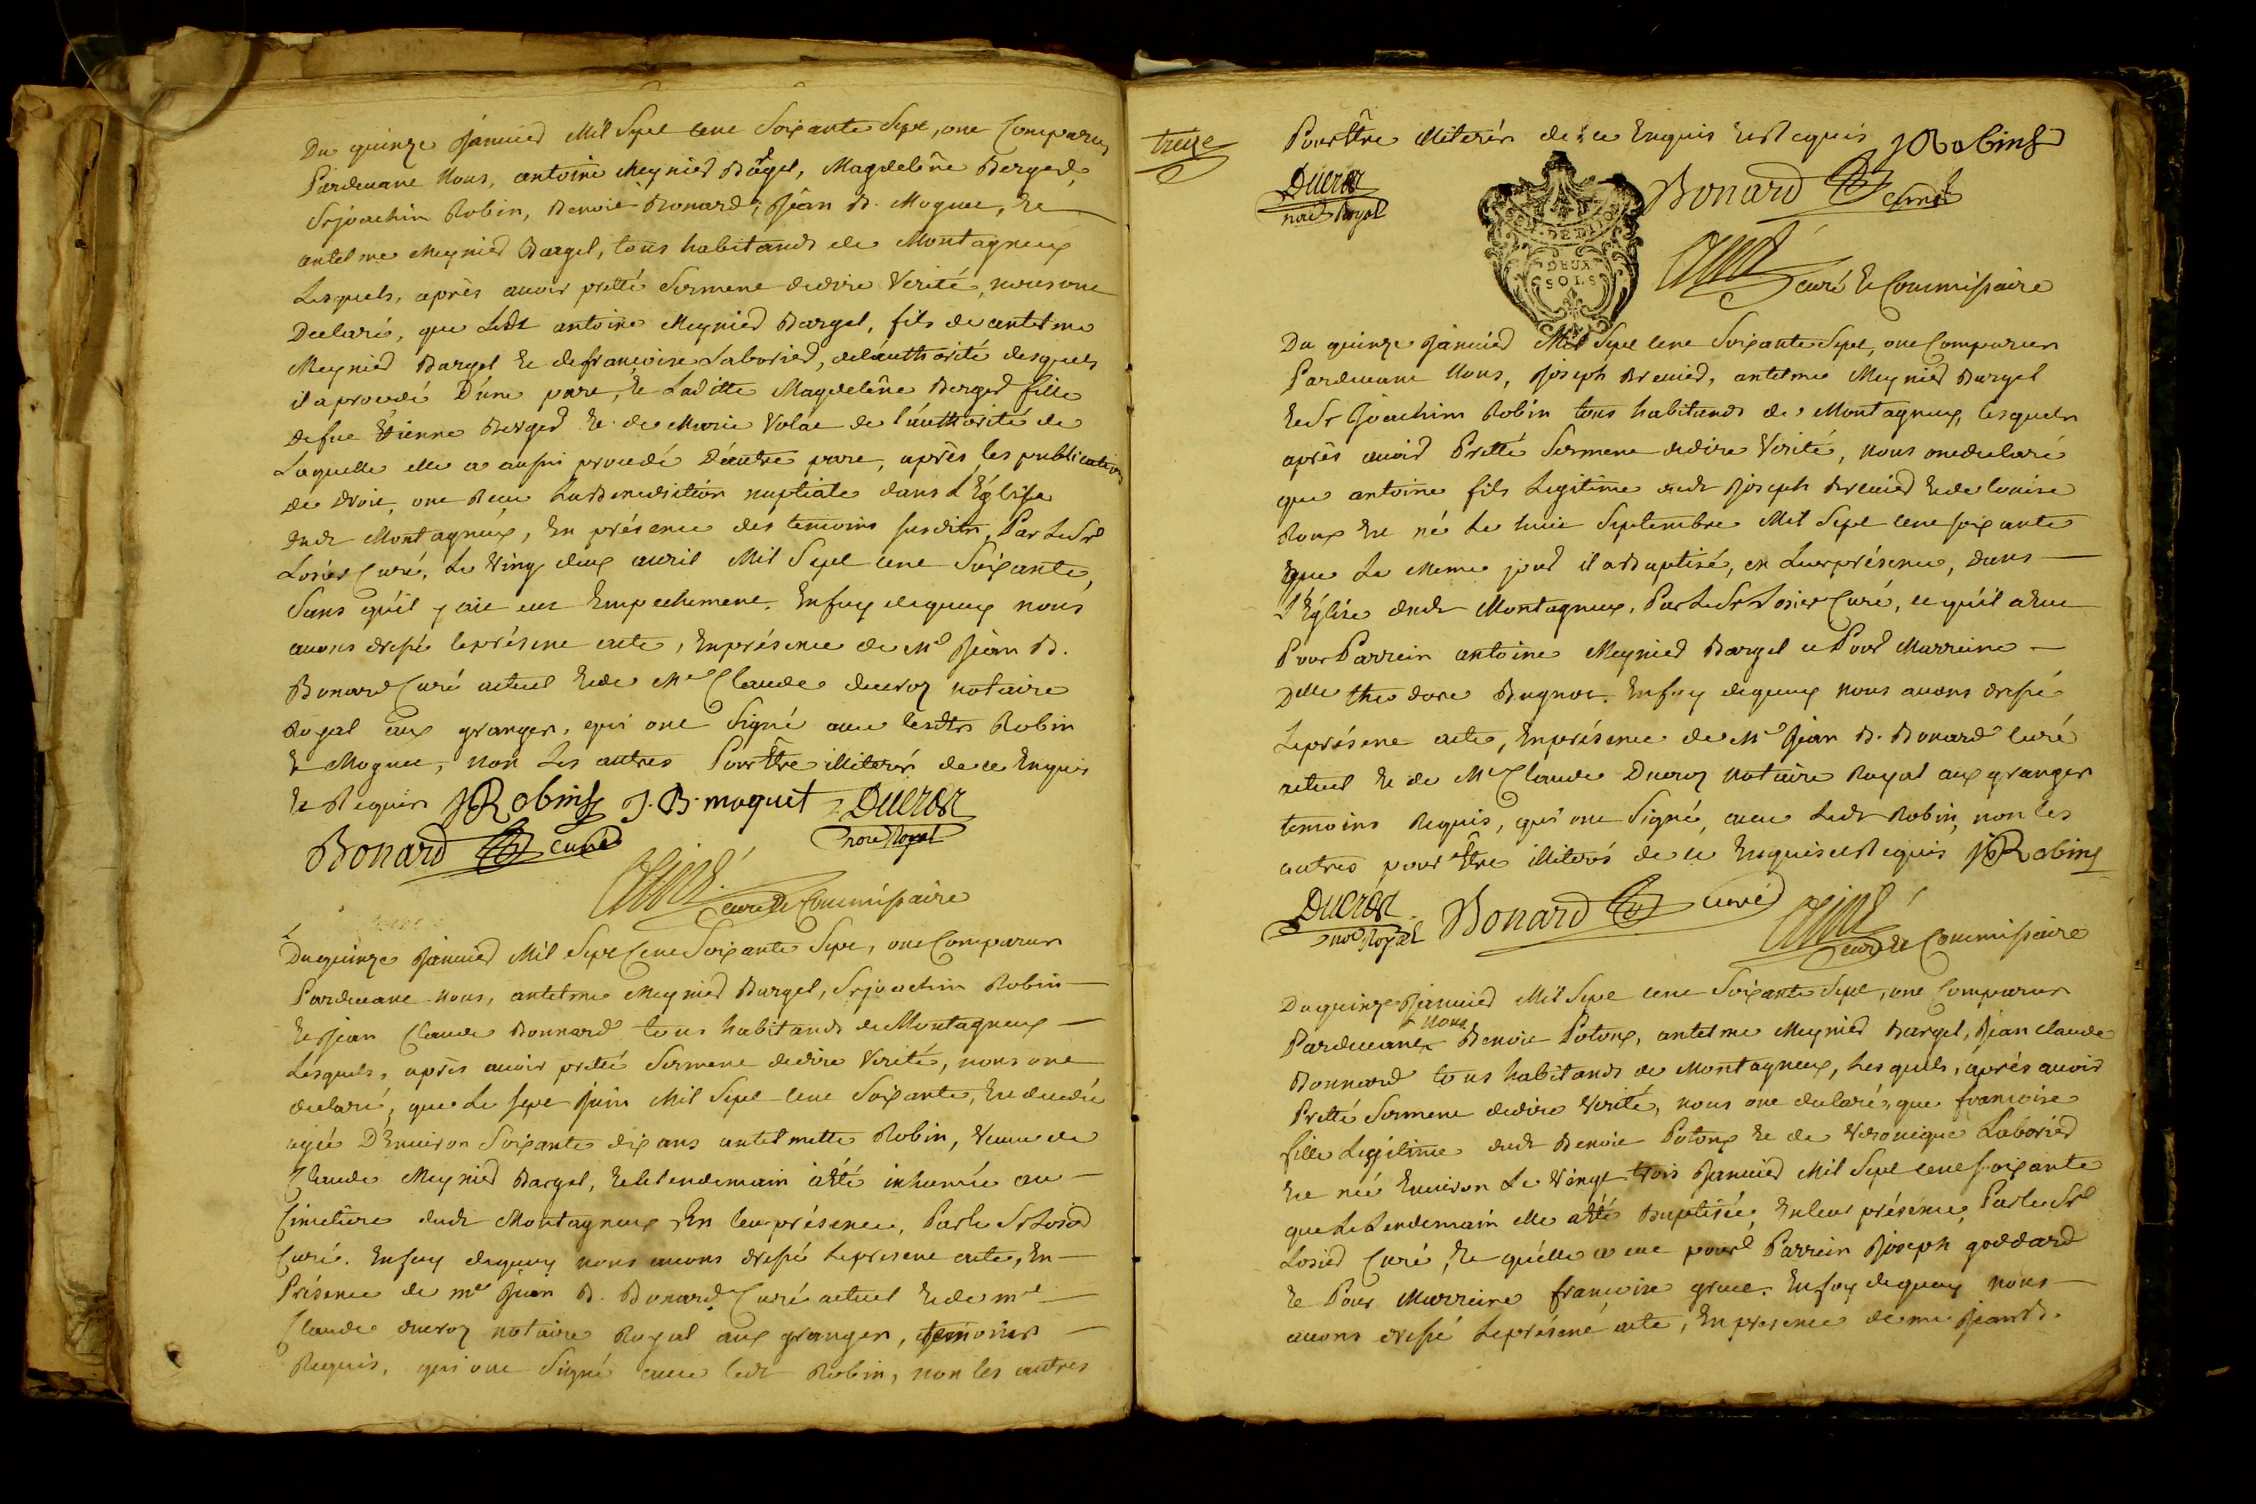 Du quinze Janvier Mil Sept Cent Soixante Sept, ont Comparus
Pardevant Nous, antoine Meynier Bargel, Magdeleine Berger,
Sr joachim Robin, Benoit Bonard, Jean B. Moguet, Et
antelme Meynier Bargel, tous habitands de Montagneux
Lesquels, après avoir prêtté Serment de dire Verité, nous ont
Declaré, que Ledt antoine Meynier Bargel, fils de antelme
Meynier Bargel Et de françoise Laborier, de l'authorité desquels
il a procedé D'une part, Et Laditte Magdeleine Berger fille
de fut Etienne Berger Et de Marie Volat de l'authorité de
Laquelle elle a aussi procedé D'autre part, après les publications
de droit, ont Receu La Benediction nuptiale dans L'Église
dudt Montagneux, En présence des temoins susdits, Par Le Sr
Losier Curé, Le Vingt deux avril Mil Sept Cent Soixante,
Sans qu'il y ait eut Empechement. En foy de quoy nous
avons dressé le présent acte, En présence de Me Jean B.
Bonard Curé actuel Et de Me Claude Ducroz notaire
Royal aux granges, qui ont Signé avec lesdts Robin
Et Moguet, non Les autres Pour Être illiterés de ce Enquis
Et Requis JRobins J. B. moguet Ducroz
Bonard curé not Royal
curé Et Commissaire
Du quinze Janvier Mil Sept Cent Soixante Sept, ont Comparus
Pardevant nous, antelme Meynier Bargel, Sr joachim Robin
Et Jean Claude Bonnard tous habitands de Montagneux
Lesquels, après avoir prêtté Serment de dire Verité, nous ont
declaré, que Le sept Juin Mil Sept Cent Soixante, Est decedée
agée D'Environ Soixante dix ans antelmette Robin, Veuve de
Claude Meynier Bargel, Et le lendemain a été inhumée au
Cimetiere dudt Montagneux En leur présence, Par le Sr Losier
Curé. En foy de quoy nous avons dressé Le présent acte, En
Présence de me Jean B. Bonard Curé actuel Et de me
Claude ducroz notaire Royal aux granges, temoins
Requis, qui ont Signé avec ledt Robin, non les autres
treize
Pour Être illiterés de ce Enquis Et Requis JRobins
Ducroz Bonard curé
not Royal
DEUX
SOLS
curé Et Commissaire
Du quinze Janvier Mil Sept Cent Soixante Sept, ont Comparus
Pardevant Nous, Joseph Brevier, antelme Meynier Bargel
Et Sr Joachim Robin tous habitands de Montagneux, lesquels
après avoir Prêtté Serment de dire Verité, nous ont declaré
que antoine fils Legitime dudt Joseph Brevier Et de Louise
Roux Est né Le huit Septembre Mil Sept Cent soixante
que Le meme jour il a Baptisé, en Leur présence, dans
L'Église dudt Montagneux, Par Le Sr Losier Curé, et qu'il a eut
Pour Parrein antoine Meynier Bargel et Pour Marreine
Dlle theodore Bugnot. En foy de quoy nous avons dressé
Le présent acte, En présence de Me Jean B. Bonard Curé
actuel Et de Me Claude Ducroz notaire Royal aux granges
temoins Requis, qui ont Signé, avec Ledt Robin, non les
autres pour être illiterés de ce Enquis et Requis JRobins
Ducroz Bonard curé
not Royal curé Et Commissaire
Du quinze Janvier Mil Sept Cent Soixante Sept, ont Comparus
Pardevant nous Benoit Potoux, antelme Meynier Bargel, Jean Claude
Bonnard tous habitands de Montagneux, Lesquels, après avoir
Prêtté Serment de dire Verité, nous ont declaré, que françoise
fille Legitime dudt Benoit Potoux Et de Veronique Laborier
Est née Environ Le Vingt trois Janvier Mil Sept Cent soixante
que Le Lendemain elle a été Baptisée, En leur présence, Par Le Sr
Losier Curé, Et qu'elle a eut pour Parrein Joseph goddard
Et Pour Marreine françoise gruel. En foy de quoy nous
avons dressé Le présent acte, En presence de me Jean B.